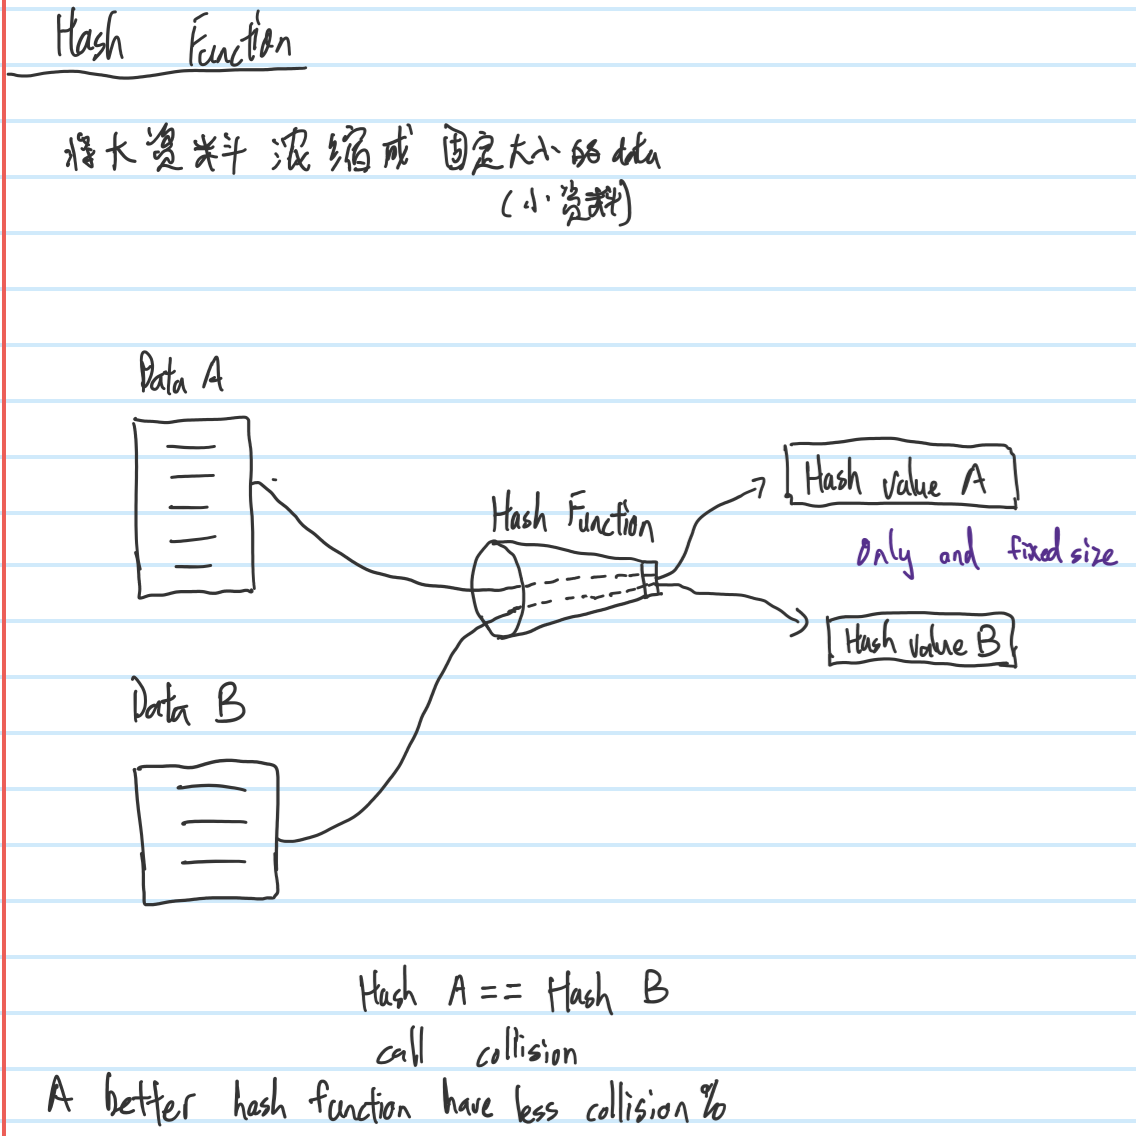 Hash Function
将大资料浓缩成固定大小的data
(小资料)
Data A
Hash Function
Hash value A
Only and fixed size
Hash value B
Data B
Hash A == Hash B
call collision
A better hash function have less collision %